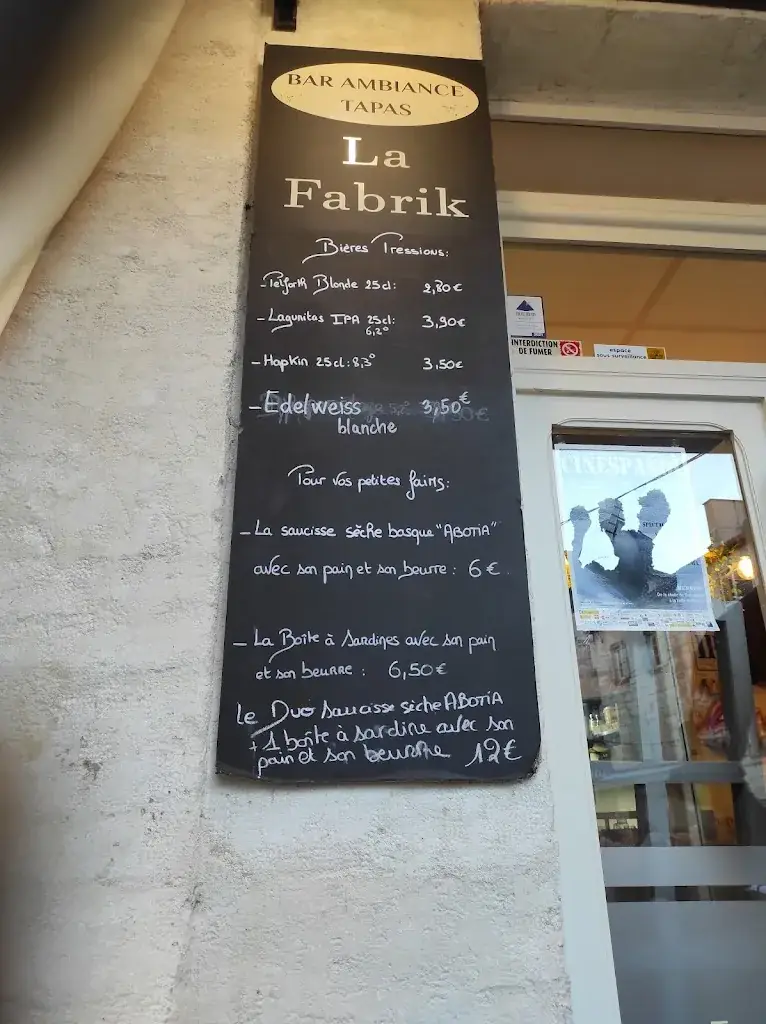 BAR AMBIANCE
TAPAS
La
Fabrik
Bières Pressions:
- Pelforth Blonde 25cl: 2,80€
- Lagunitas IPA 25cl: 3,90€
6,2°
- Hopkin 25cl: 8,3° 3,50€
- Edelweiss 3,50€
blanche
Pour vos petites faims:
- La saucisse sèche basque "ABOTIA"
avec son pain et son beurre : 6€
- La Boîte à Sardines avec son pain
et son beurre : 6,50€
le Duo Saucisse sèche ABOTIA
+ 1 boîte à sardine avec son
pain et son beurre 12€
INTERDICTION
DE FUMER
espace
sous surveillance